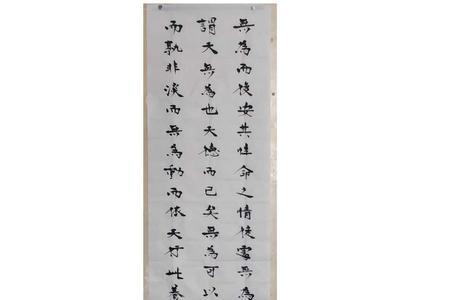 無為而後安其性命之情後處無為
謂天無為也天德而已矣無為可以
而孰非淡而無為動而依天行此養